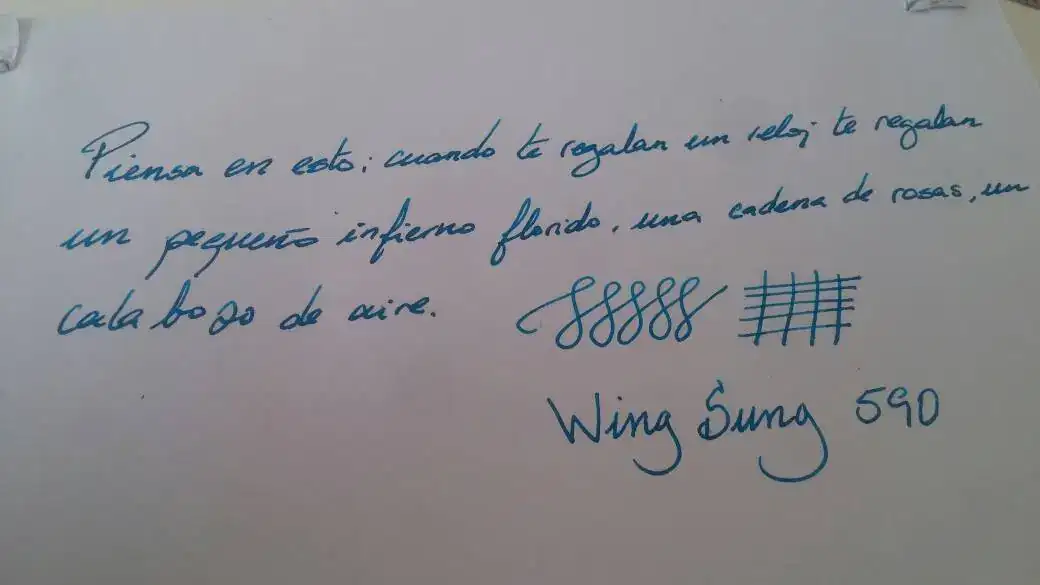 Piensa en esto: cuando te regalan un reloj te regalan
un pequeño infierno florido, una cadena de rosas, un
calabozo de aire.
Wing Sung 590